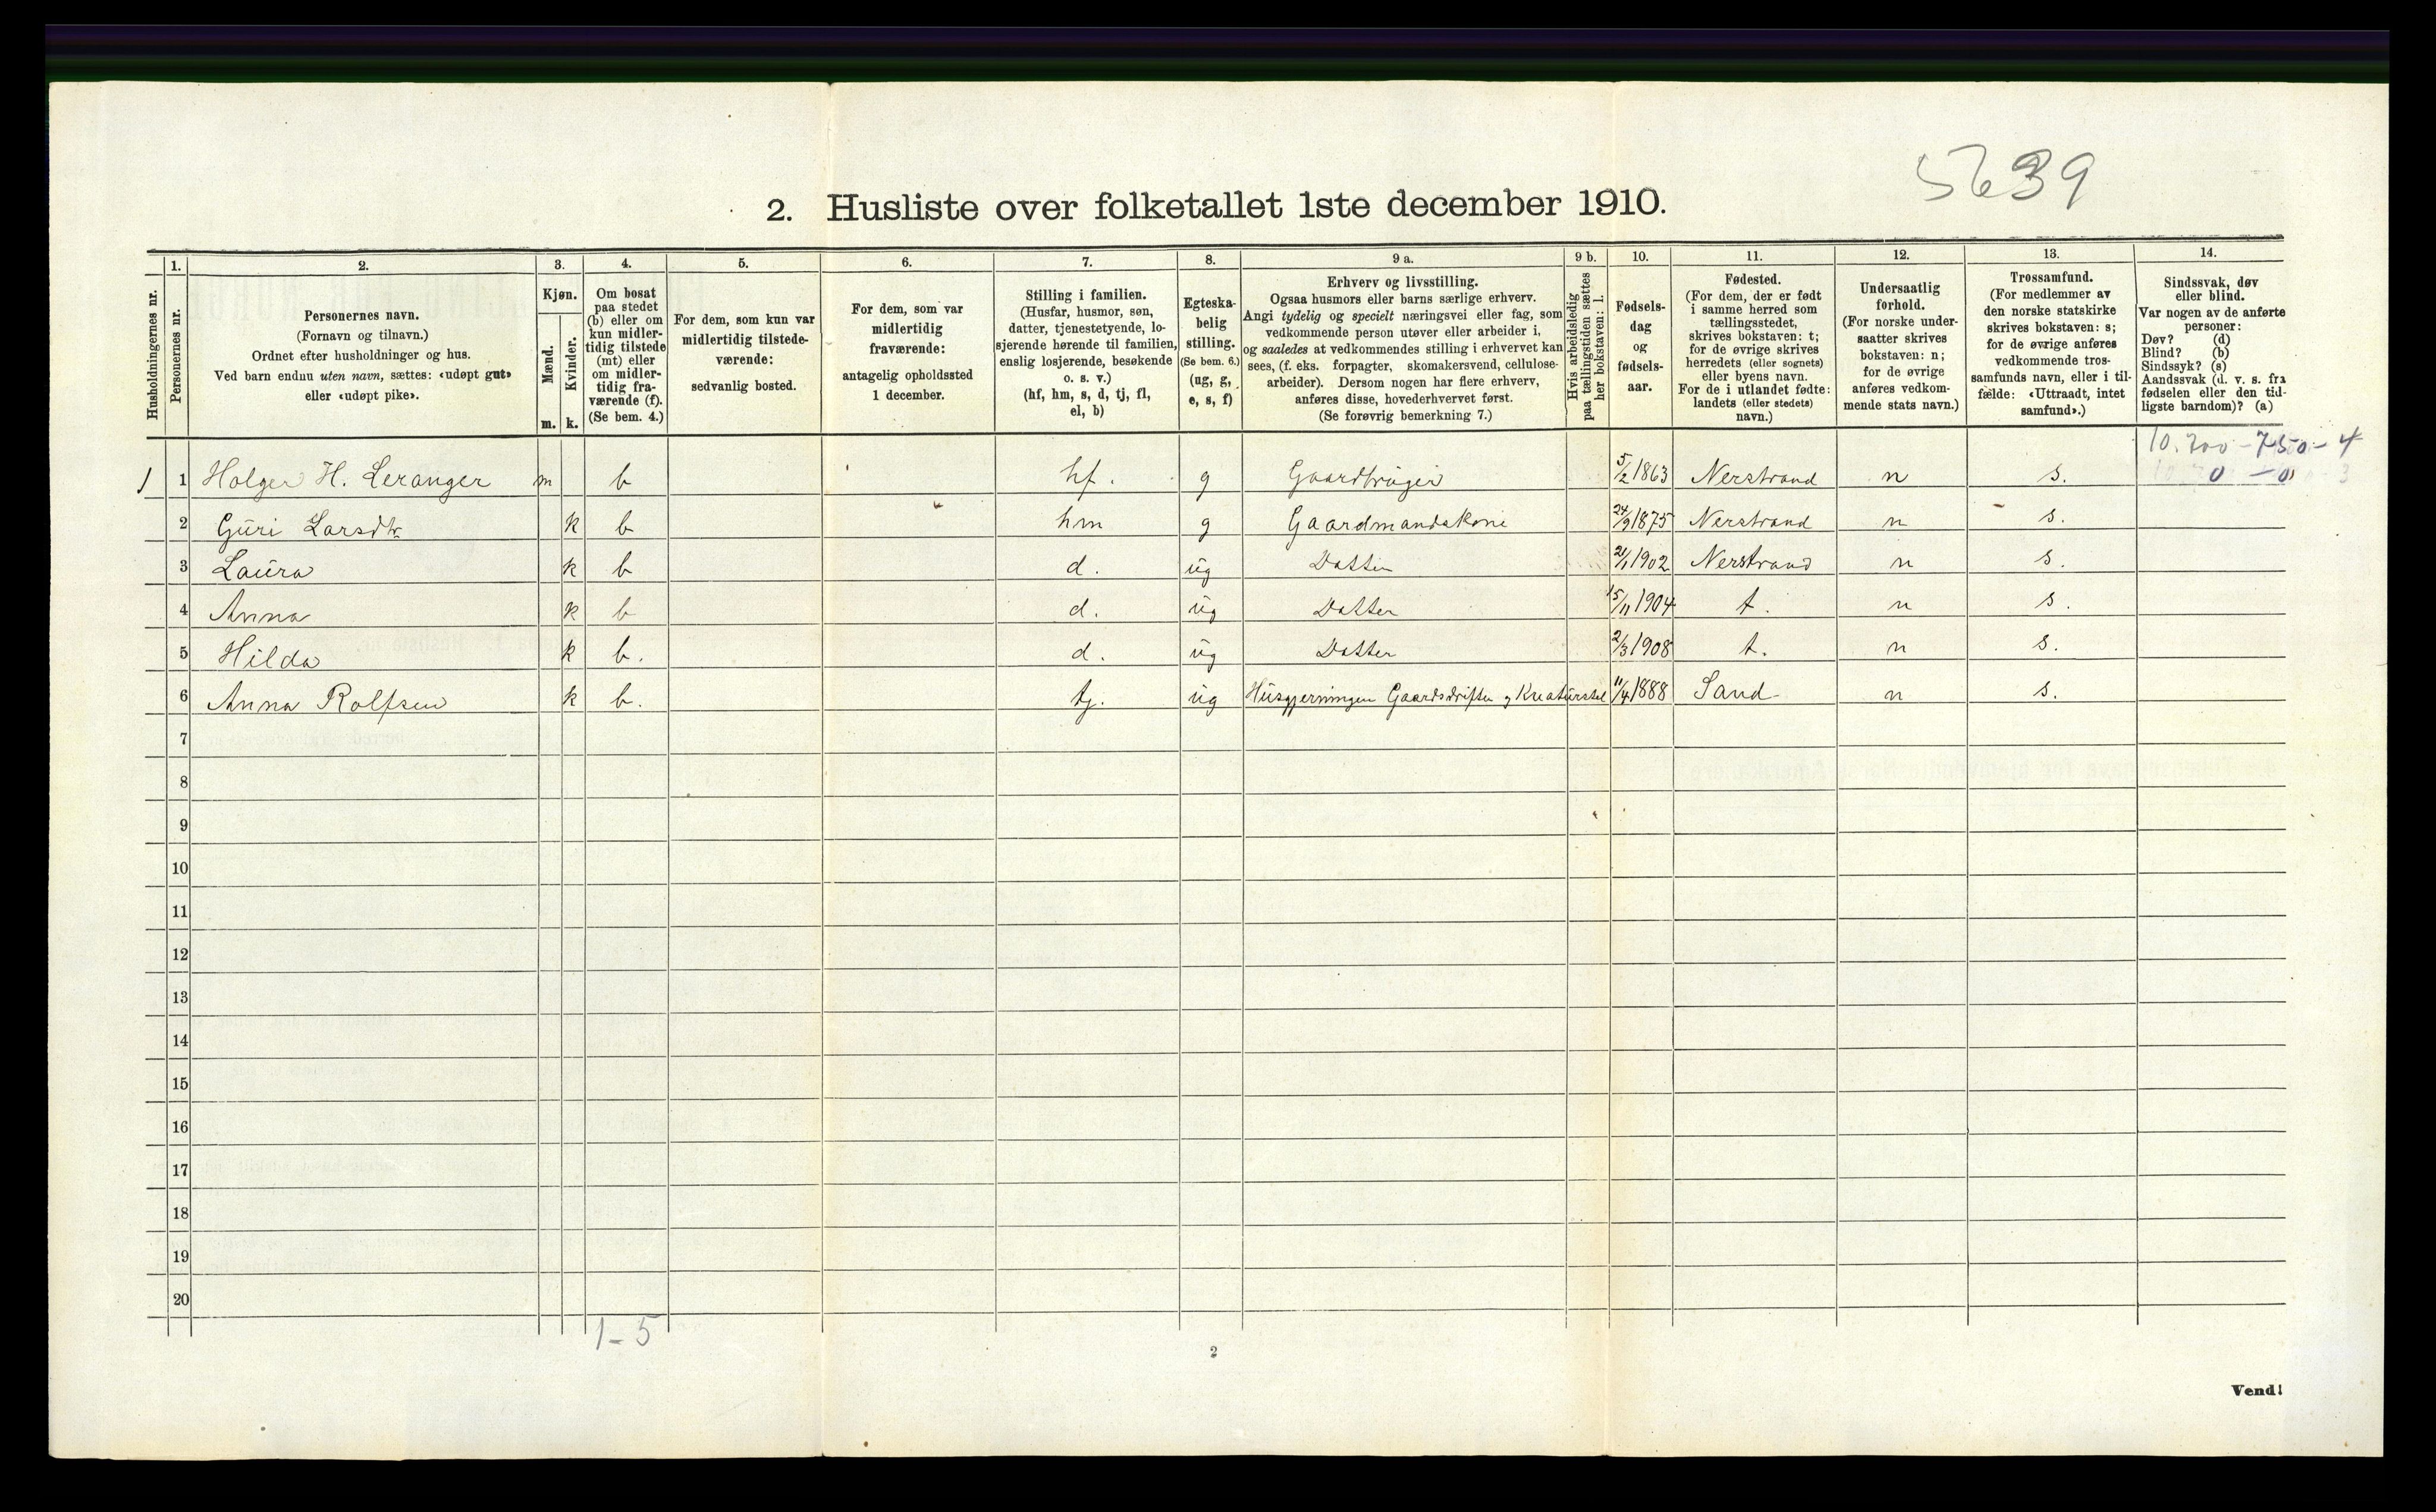 5639
2. Husliste over folketallet 1ste december 1910.
Husholdningernes nr.
1. Personernes nr.
2. Personernes navn.
(Fornavn og tilnavn.)
Ordnet efter husholdninger og hus.
Ved barn endnu uten navn, sættes: «udøpt gut»
eller «udøpt pike».
3. Kjøn.
Mænd. m.
Kvinder. k.
4. Om bosat
paa stedet
(b) eller om
kun midler-
tidig tilstede
(mt) eller
om midler-
tidig fra-
værende (f).
(Se bem. 4.)
5. For dem, som kun var
midlertidig tilstede-
værende:
sedvanlig bosted.
6. For dem, som var
midlertidig
fraværende:
antagelig opholdssted
1 december.
7. Stilling i familien.
(Husfar, husmor, søn,
datter, tjenestetyende, lo-
sjerende hørende til familien,
enslig losjerende, besøkende
o. s. v.)
(hf, hm, s, d, tj, fl,
el, b)
8. Egteska-
belig
stilling.
(Se bem. 6.)
(ug, g,
e, s, f)
9 a. Erhverv og livsstilling.
Ogsaa husmors eller barns særlige erhverv.
Angi tydelig og specielt næringsvei eller fag, som
vedkommende person utøver eller arbeider i,
og saaledes at vedkommendes stilling i erhvervet kan
sees, (f. eks. forpagter, skomakersvend, cellulose-
arbeider). Dersom nogen har flere erhverv,
anføres disse, hovederhvervet først.
(Se forøvrig bemerkning 7.)
9 b. Hvis arbeidsledig
paa tællingstiden sættes
her bokstaven: l.
10. Fødsels-
dag
og
fødsels-
aar.
11. Fødested.
(For dem, der er født
i samme herred som
tællingsstedet,
skrives bokstaven: t;
for de øvrige skrives
herredets (eller sognets)
eller byens navn.
For de i utlandet fødte:
landets (eller stedets)
navn.)
12. Undersaatlig
forhold.
(For norske under-
saatter skrives
bokstaven: n;
for de øvrige
anføres vedkom-
mende stats navn.)
13. Trossamfund.
(For medlemmer av
den norske statskirke
skrives bokstaven: s;
for de øvrige anføres
vedkommende tros-
samfunds navn, eller i til-
fælde: «Uttraadt, intet
samfund».)
14. Sindssvak, døv
eller blind.
Var nogen av de anførte
personer:
Døv? (d)
Blind? (b)
Sindssyk? (s)
Aandssvak (d. v. s. fra
fødselen eller den tid-
ligste barndom)? (a)
10.200 - 7450 - 4
0 - 0
1 1 Holger H. Leranger m b hf. g Gaardbruger 5/2 1863 Nerstrand n s.
2 Guri Larsdtr k b hm g Gaardmandskone 24/9 1875 Nerstrand n s.
3 Laura k b d. ug Datter 2/1 1902 Nerstrand n s.
4 Anna k b d. ug Datter 15/11 1904 t. n s.
5 Hilda k b. d. ug Datter 2/3 1908 t. n s.
6 Anna Rolfsen k b. tj. ug Husgjerningen Gaardsdriften og Kreaturstel 11/4 1888 Sand n s.
7
8
9
10
11
12
13
14
15
16
17
18
19
20
1-5
2
Vend!